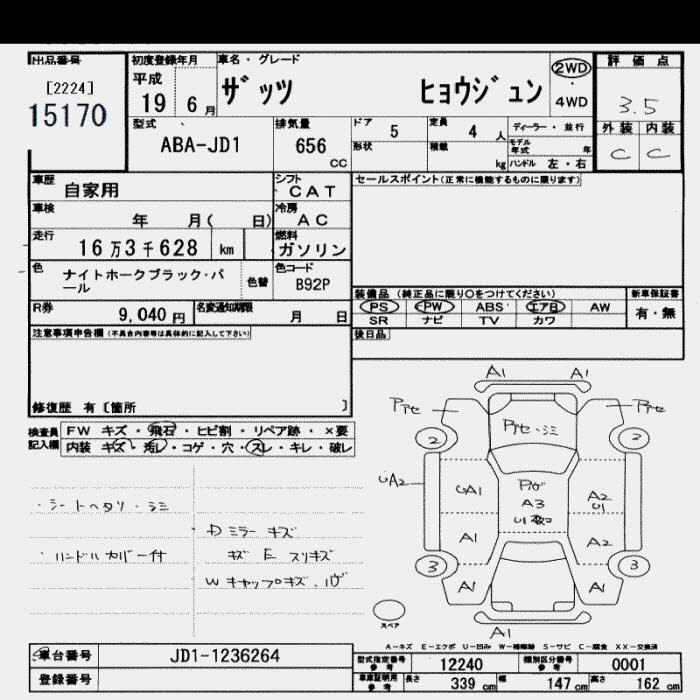 出品番号
[2224]
15170
初度登録年月
平成
19 6月
車名・グレード
ザッツ ヒョウジュン
2WD
・
4WD
評価点
3.5
外装 内装
C C
型式
ABA-JD1
排気量
656 CC
ドア 5
定員 4 人
形状
積載 kg
ディーラー・並行
モデル年式 年
ハンドル 左・右
車歴 自家用
シフト CAT
車検 年 月( 日)
冷房 AC
走行 16万3千628 km
燃料 ガソリン
色 ナイトホークブラック・パ
ール
色替
色コード B92P
R券 9,040 円
名変通知期限 月 日
セールスポイント(正常に機能するものに限ります)
装備品 (純正品に限り〇をつけてください)
PS PW ABS エアB AW
SR ナビ TV カワ
新車保証書
有・無
後日品
注意事項申告欄 (不具合内容等は具体的に記入して下さい)
修復歴 有 [箇所 ]
検査員記入欄
FW キズ・飛石・ヒビ割・リペア跡・×要
内装 キズ・汚レ・コゲ・穴・スレ・キレ・破レ
・シートヘタリ・シミ
・ハンドルカバー付
・Dミラーキズ
キズ E スリキズ
Wキャップキズ、
A1 A1
2 2
UA2
UA1
A3
A2
U1
A1
A2
3 3
A1 A1
A1
スペア
A-キズ E-エクボ U-凹み W-補修跡 S-サビ C-腐食 XX-交換済
車台番号 JD1-1236264
登録番号
型式指定番号参考 12240
類別区分番号参考 0001
車庫証明用参考 長さ 339 cm 幅 147 cm 高さ 162 cm